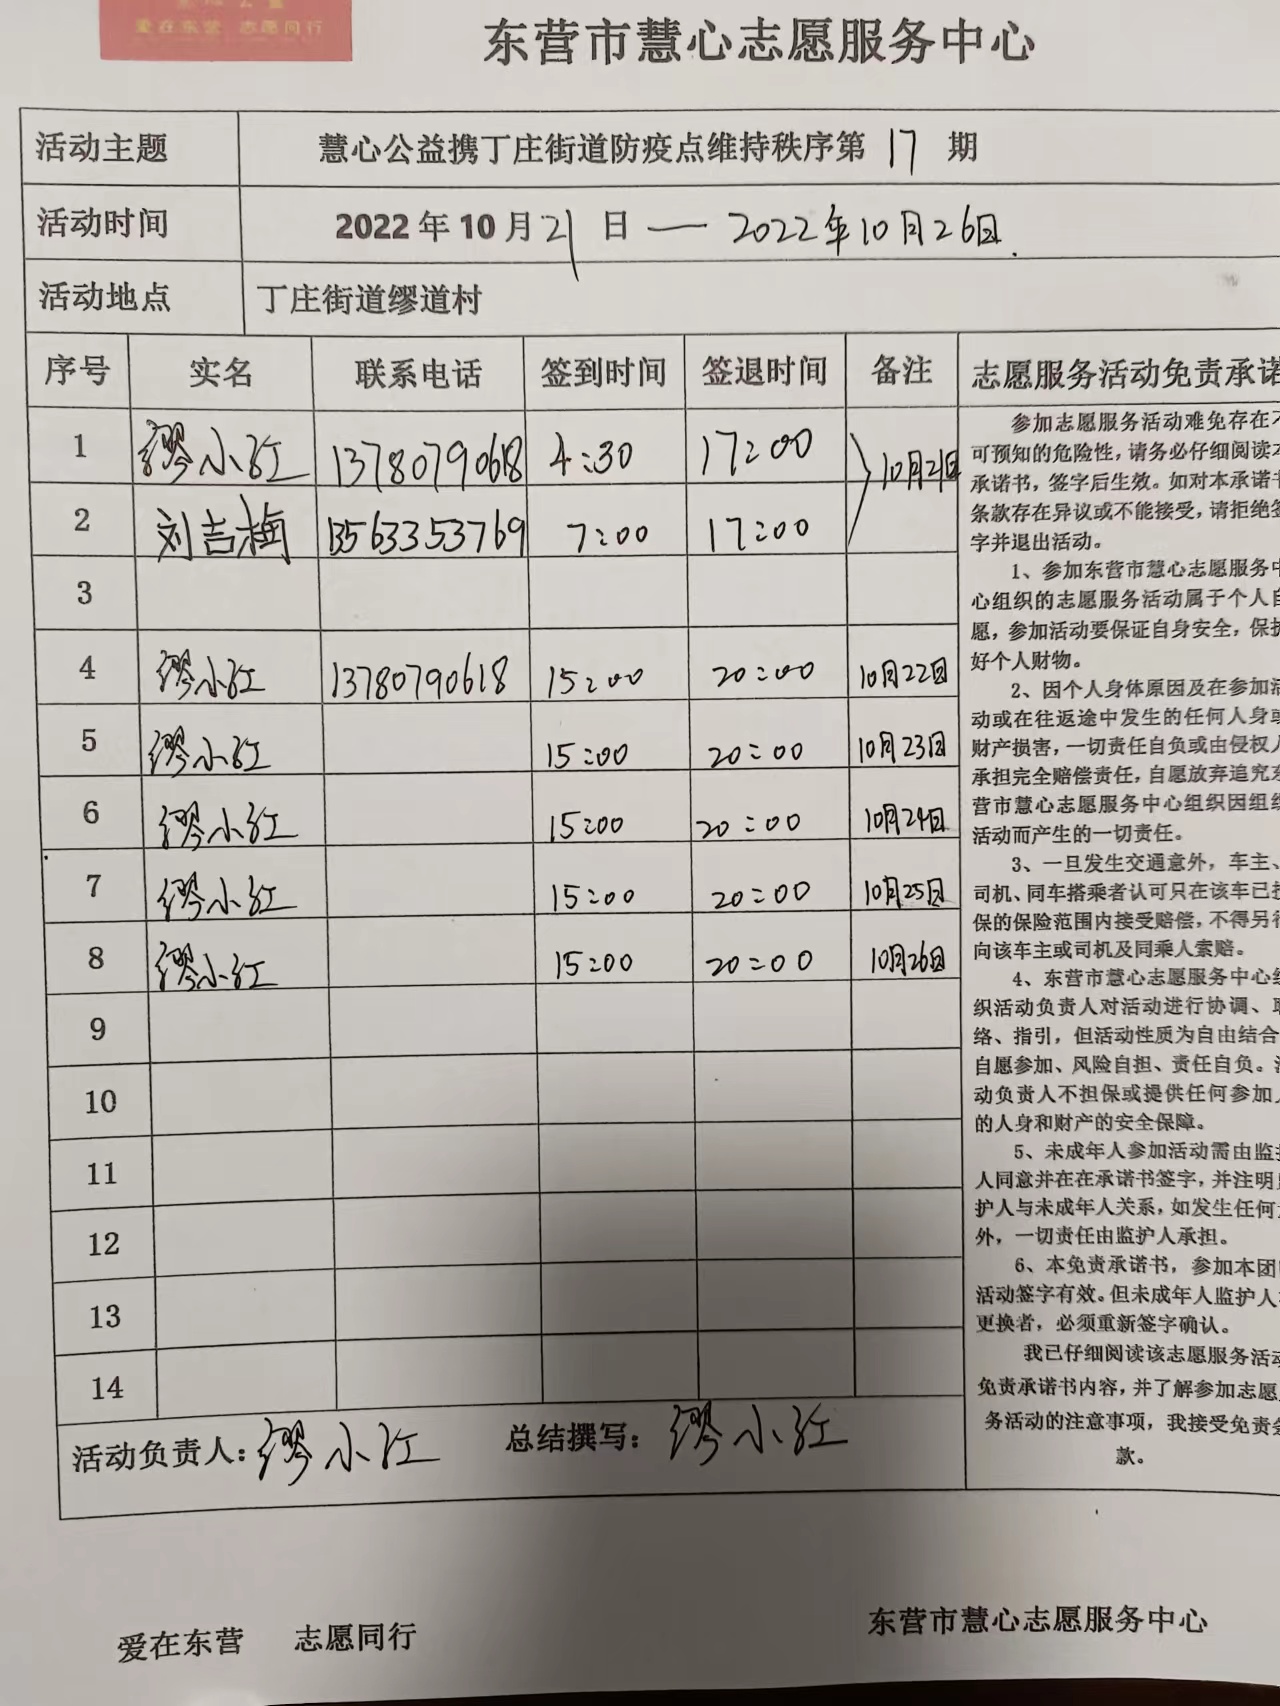 爱在东营 志愿同行
东营市慧心志愿服务中心
活动主题 慧心公益携丁庄街道防疫点维持秩序第 17 期
活动时间 2022年10月21日 — 2022年10月26日.
活动地点 丁庄街道缪道村
序号 实名 联系电话 签到时间 签退时间 备注
1 缪小红 13780790618 4:30 17:00 10月21日
2 刘吉梅 13563353769 7:00 17:00
3
4 缪小红 13780790618 15:00 20:00 10月22日
5 缪小红 15:00 20:00 10月23日
6 缪小红 15:00 20:00 10月24日
7 缪小红 15:00 20:00 10月25日
8 缪小红 15:00 20:00 10月26日
9
10
11
12
13
14
活动负责人:缪小红 总结撰写:缪小红
志愿服务活动免责承诺
参加志愿服务活动难免存在不
可预知的危险性,请务必仔细阅读本
承诺书,签字后生效。如对本承诺书
条款存在异议或不能接受,请拒绝签
字并退出活动。
1、参加东营市慧心志愿服务中
心组织的志愿服务活动属于个人自
愿,参加活动要保证自身安全,保护
好个人财物。
2、因个人身体原因及在参加活
动或在往返途中发生的任何人身或
财产损害,一切责任自负或由侵权人
承担完全赔偿责任,自愿放弃追究东
营市慧心志愿服务中心组织因组织
活动而产生的一切责任。
3、一旦发生交通意外,车主、
司机、同车搭乘者认可只在该车已投
保的保险范围内接受赔偿,不得另行
向该车主或司机及同乘人索赔。
4、东营市慧心志愿服务中心组
织活动负责人对活动进行协调、联
络、指引,但活动性质为自由结合
自愿参加、风险自担、责任自负。活
动负责人不担保或提供任何参加人
的人身和财产的安全保障。
5、未成年人参加活动需由监护
人同意并在在承诺书签字,并注明监
护人与未成年人关系,如发生任何意
外,一切责任由监护人承担。
6、本免责承诺书,参加本团
活动签字有效。但未成年人监护人
更换者,必须重新签字确认。
我已仔细阅读该志愿服务活动
免责承诺书内容,并了解参加志愿
务活动的注意事项,我接受免责条
款。
爱在东营 志愿同行
东营市慧心志愿服务中心